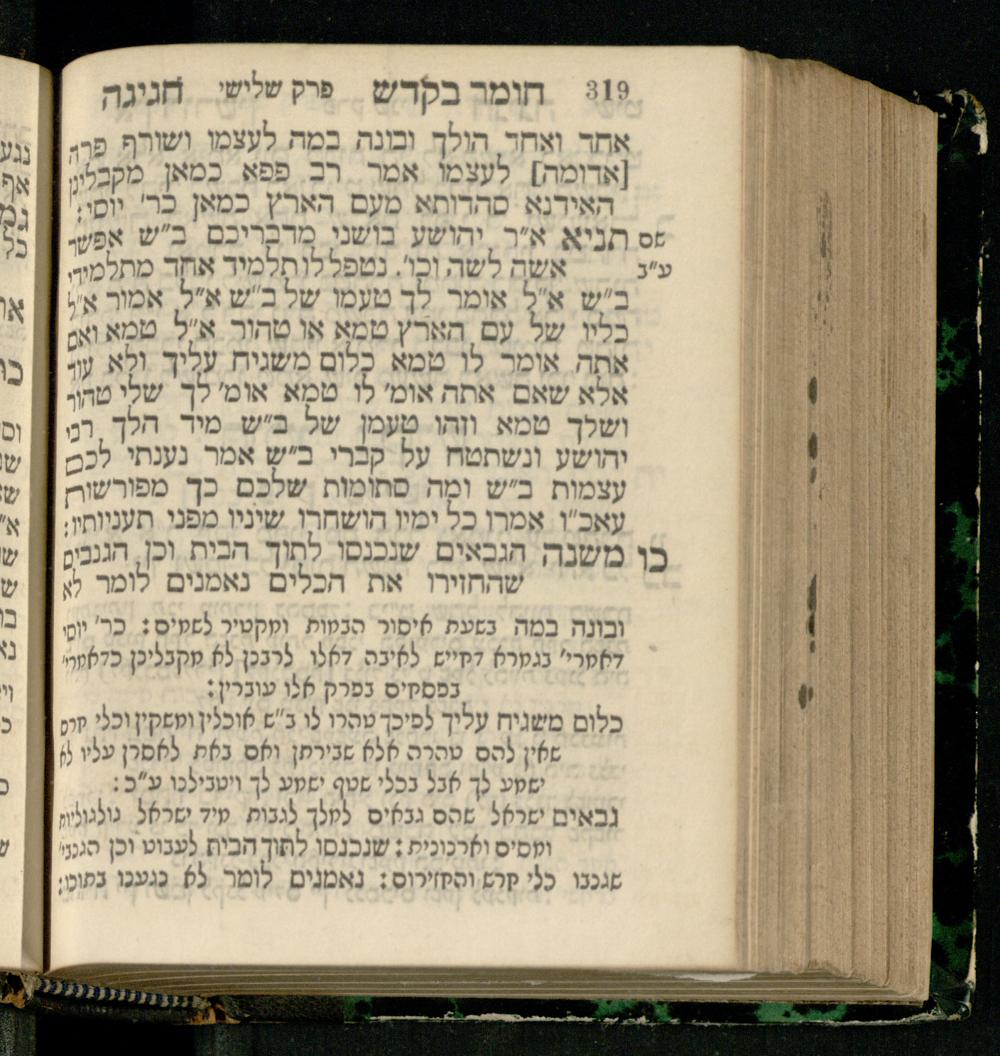 319 חומר בקדש פרק שלישי חגיגה
אחד ואחד הולך ובונה במה לעצמו ושורף פרה
[אדומה] לעצמו אמר רב פפא כמאן מקבלינן
האידנא סהדותא מעם הארץ כמאן כר' יוסי:
שם תניא א״ר יהושע בושני מדבריכם ב״ש אפשר
ע״ב אשה לשה וכו'. נטפל לו תלמיד אחד מתלמידי
ב״ש א״ל אומר לך טעמו של ב״ש א״ל אמור א״ל
כליו של עם הארץ טמא או טהור א״ל טמא ואם
אתה אומר לו טמא כלום משגיח עליך ולא עוד
אלא שאם אתה אומ' לו טמא אומ' לך שלי טהור
ושלך טמא וזהו טעמן של ב״ש מיד הלך רבי
יהושע ונשתטח על קברי ב״ש אמר נענתי לכם
עצמות ב״ש ומה סתומות שלכם כך מפורשות
עאכ״ו אמרו כל ימיו הושחרו שיניו מפני תעניותיו:
כו משנה הגבאים שנכנסו לתוך הבית וכן הגנבים
שהחזירו את הכלים נאמנים לומר לא
ובונה במה בשעת איסור הבמות ומקטיר לשמים: כר' יוסי
דאמרי' בגמרא דחייש לאיבה דאלו לרבנן לא מקבלינן כדאמרי'
בפסחים בפרק אלו עוברין:
כלום משגיח עליך לפיכך טהרו לו ב״ש אוכלין ומשקין וכלי חרס
שאין להם טהרה אלא שבירתן ואם באת לאסרן עליו לא
ישמע לך אבל בכלי שטף ישמע לך ויטבילנו ע״כ:
גבאים ישראל שהם גבאים למלך לגבות מיד ישראל גולגוליות
ומסים וארנונית: שנכנסו לתוך הבית לעבוט וכן הגנבי'
שגנבו כלי חרש והחזירום: נאמנים לומר לא נגענו בתוכו: